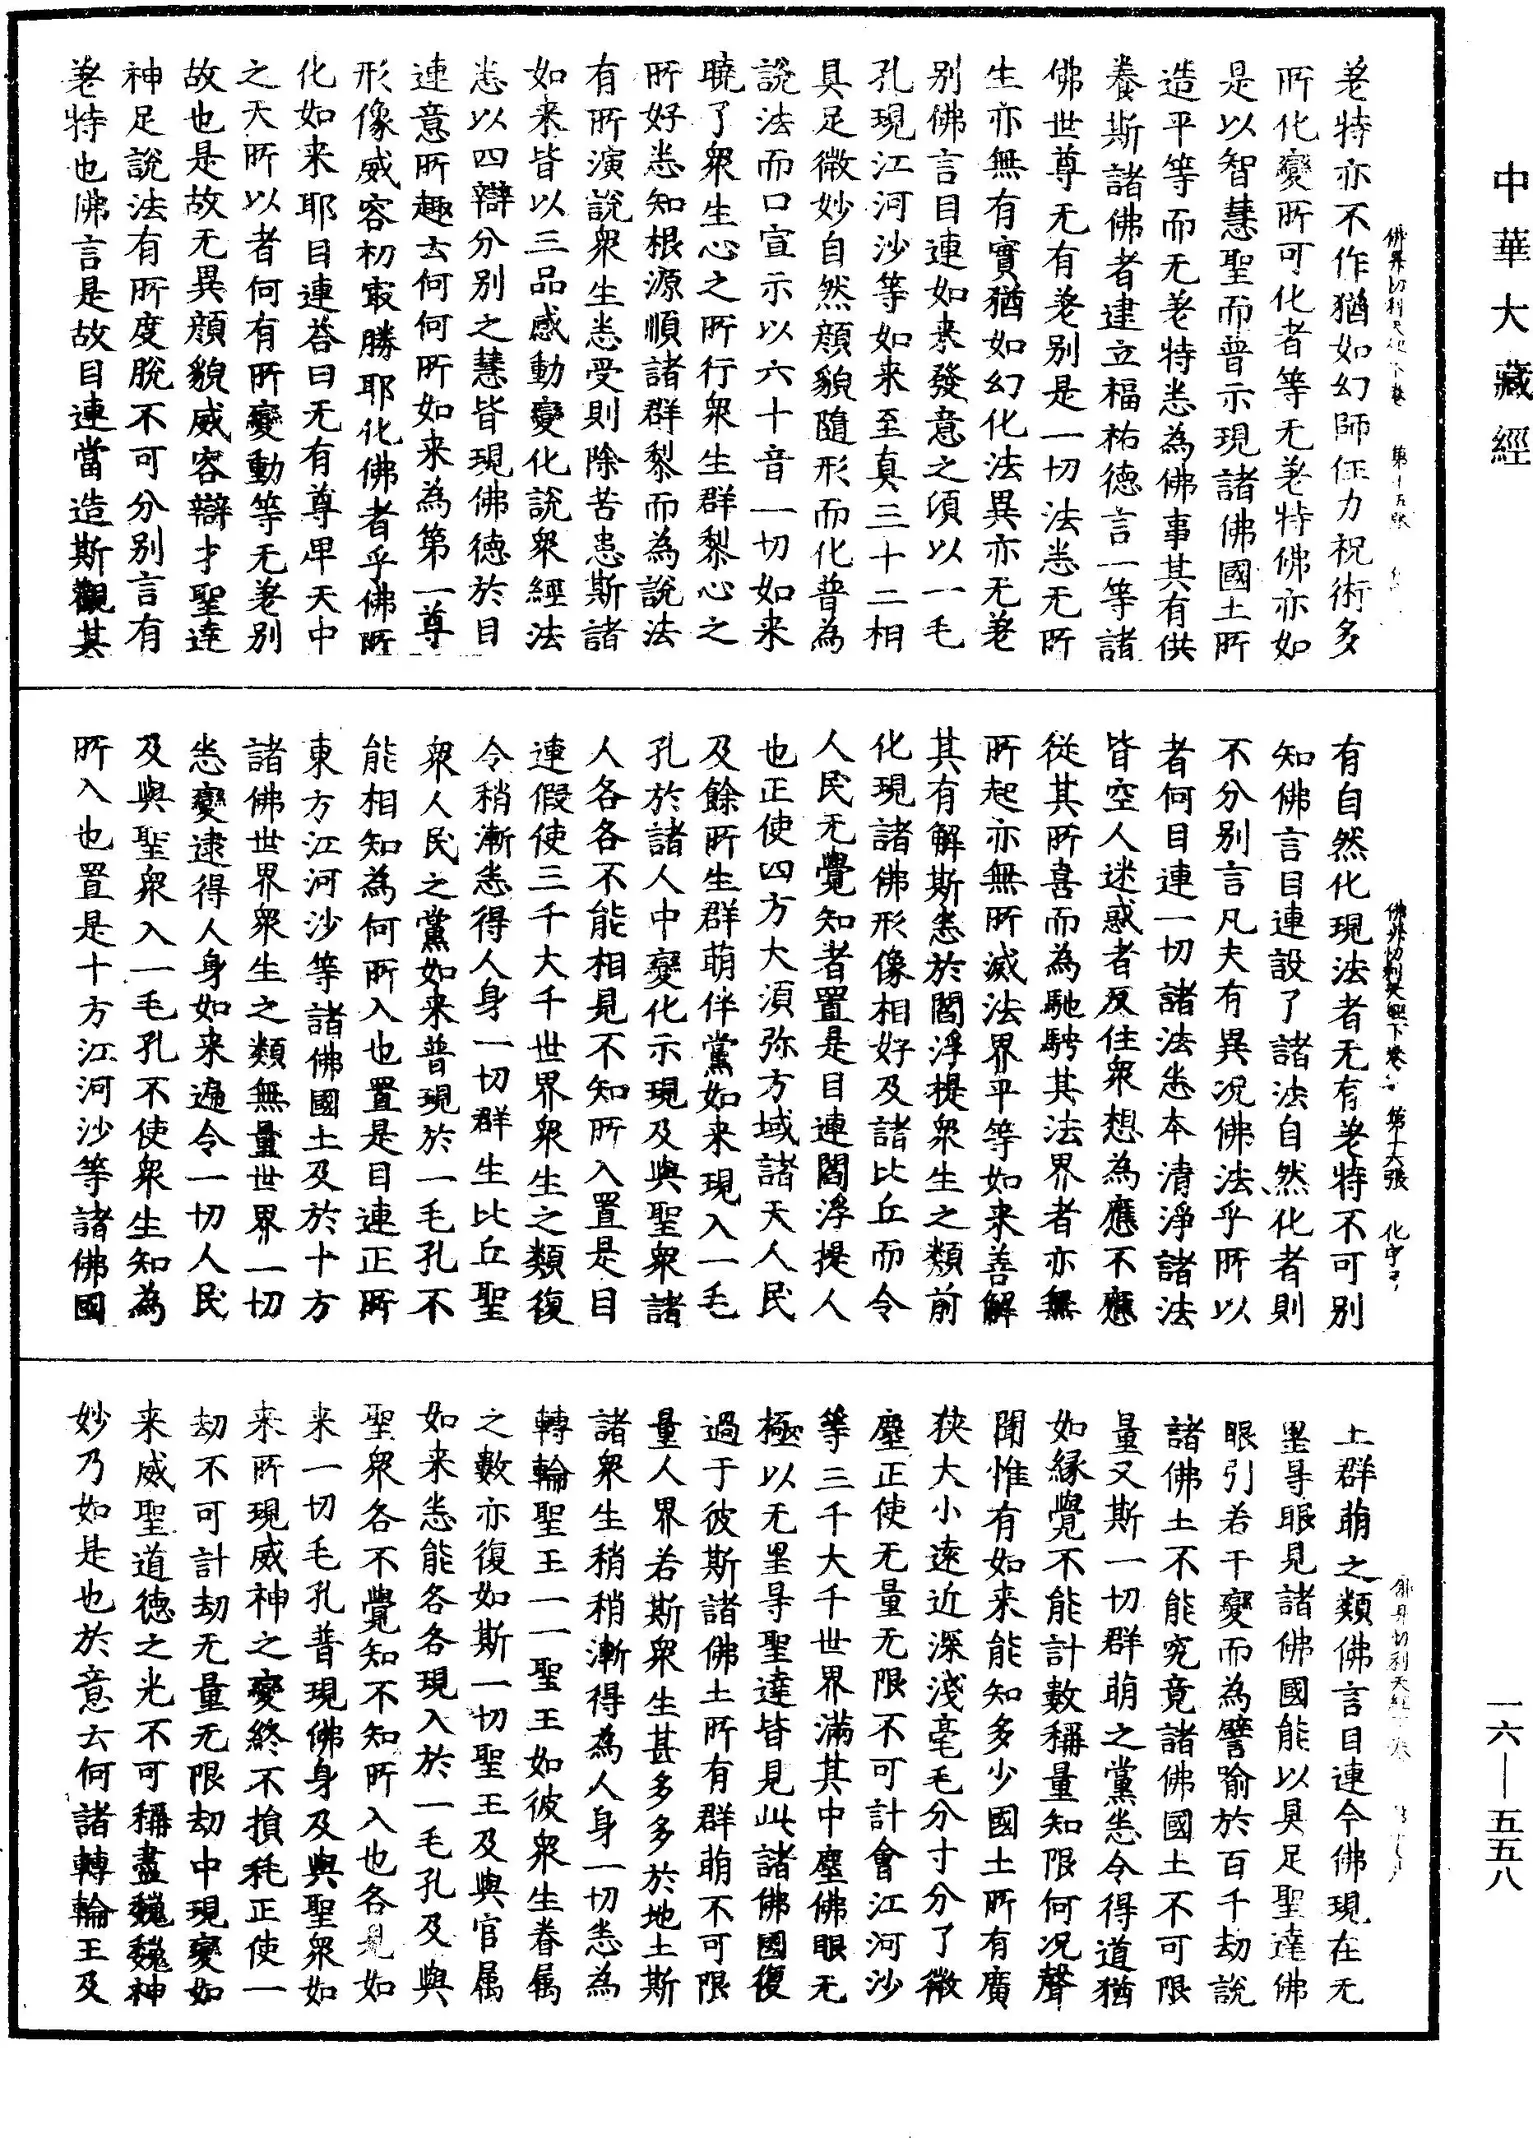 中華大藏經
差特亦不作猶如幻師任力祝術多
所化變所可化者等无差特佛亦如
是以智慧聖而普示現諸佛國土所
造平等而无差特悉為佛事其有供
養斯諸佛者建立福祐德言一等諸
佛世尊无有差别是一切法悉无所
生亦無有實猶如幻化法異亦无差
别佛言目連如来發意之頃以一毛
孔現江河沙等如来至真三十二相
具足微妙自然顏貌隨形而化普為
說法而口宣示以六十音一切如来
曉了衆生心之所行衆生群黎心之
所好悉知根源順諸群黎而為說法
有所演說衆生悉受則除苦患斯諸
如来皆以三品感動變化說衆經法
悉以四辯分别之慧皆現佛德於目
連意所趣云何何所如来為第一尊
形像威容初冣勝耶化佛者乎佛所
化如来耶目連荅曰无有尊甲天中
之天所以者何有所變動等无差别
故也是故无異顏貌威容辯才聖達
神足說法有所度脫不可分别言有
差特也佛言是故目連當造斯觀其
佛昇忉利天經下卷 第十五張
有自然化現法者无有差特不可别
知佛言目連設了諸法自然化者則
不分别言凡夫有異况佛法乎所以
者何目連一切諸法悉本清淨諸法
皆空人迷惑者反住衆想為應不應
從其所喜而為馳騁其法界者亦無
所起亦無所滅法界平等如来善解
其有解斯悉於閻浮提衆生之類前
化現諸佛形像相好及諸比丘而令
人民无覺知者置是目連閻浮提人
也正使四方大湏弥方域諸天人民
及餘所生群萌伴黨如来現入一毛
孔於諸人中變化示現及與聖衆諸
人各各不能相見不知所入置是目
連假使三千大千世界衆生之類復
令稍漸悉得人身一切群生比丘聖
衆人民之黨如来普現於一毛孔不
能相知為何所入也置是目連正所
東方江河沙等諸佛國土及於十方
諸佛世界衆生之類無量世界一切
悉變逮得人身如来遍令一切人民
及與聖衆入一毛孔不使衆生知為
所入也置是十方江河沙等諸佛國
佛昇忉利天經下卷 第十六張 化字号
土群萌之類佛言目連今佛現在无
罣导眼見諸佛國能以具足聖達佛
眼引若干變而為譬喻於百千劫說
諸佛土不能究竟諸佛國土不可限
量又斯一切群萌之黨悉令得道猶
如緣覺不能計數稱量知限何况聲
聞惟有如来能知多少國土所有廣
狹大小遠近深淺毫毛分寸分了微
塵正使无量无限不可計會江河沙
等三千大千世界滿其中塵佛眼无
極以无罣导聖達皆見此諸佛國復
過于彼斯諸佛土所有群萌不可限
量人界若斯衆生甚多多於地土斯
諸衆生稍稍漸得為人身一切悉為
轉輪聖王一一聖王如彼衆生眷属
之數亦復如斯一切聖王及與官属
如来悉能各各現入於一毛孔及與
聖衆各不覺知不知所入也各見如
来一切毛孔普現佛身及與聖衆如
来所現威神之變終不損耗正使一
劫不可計劫无量无限劫中現變如
来威聖道德之光不可稱盡巍巍神
妙乃如是也於意云何諸轉輪王及
一六—五五八